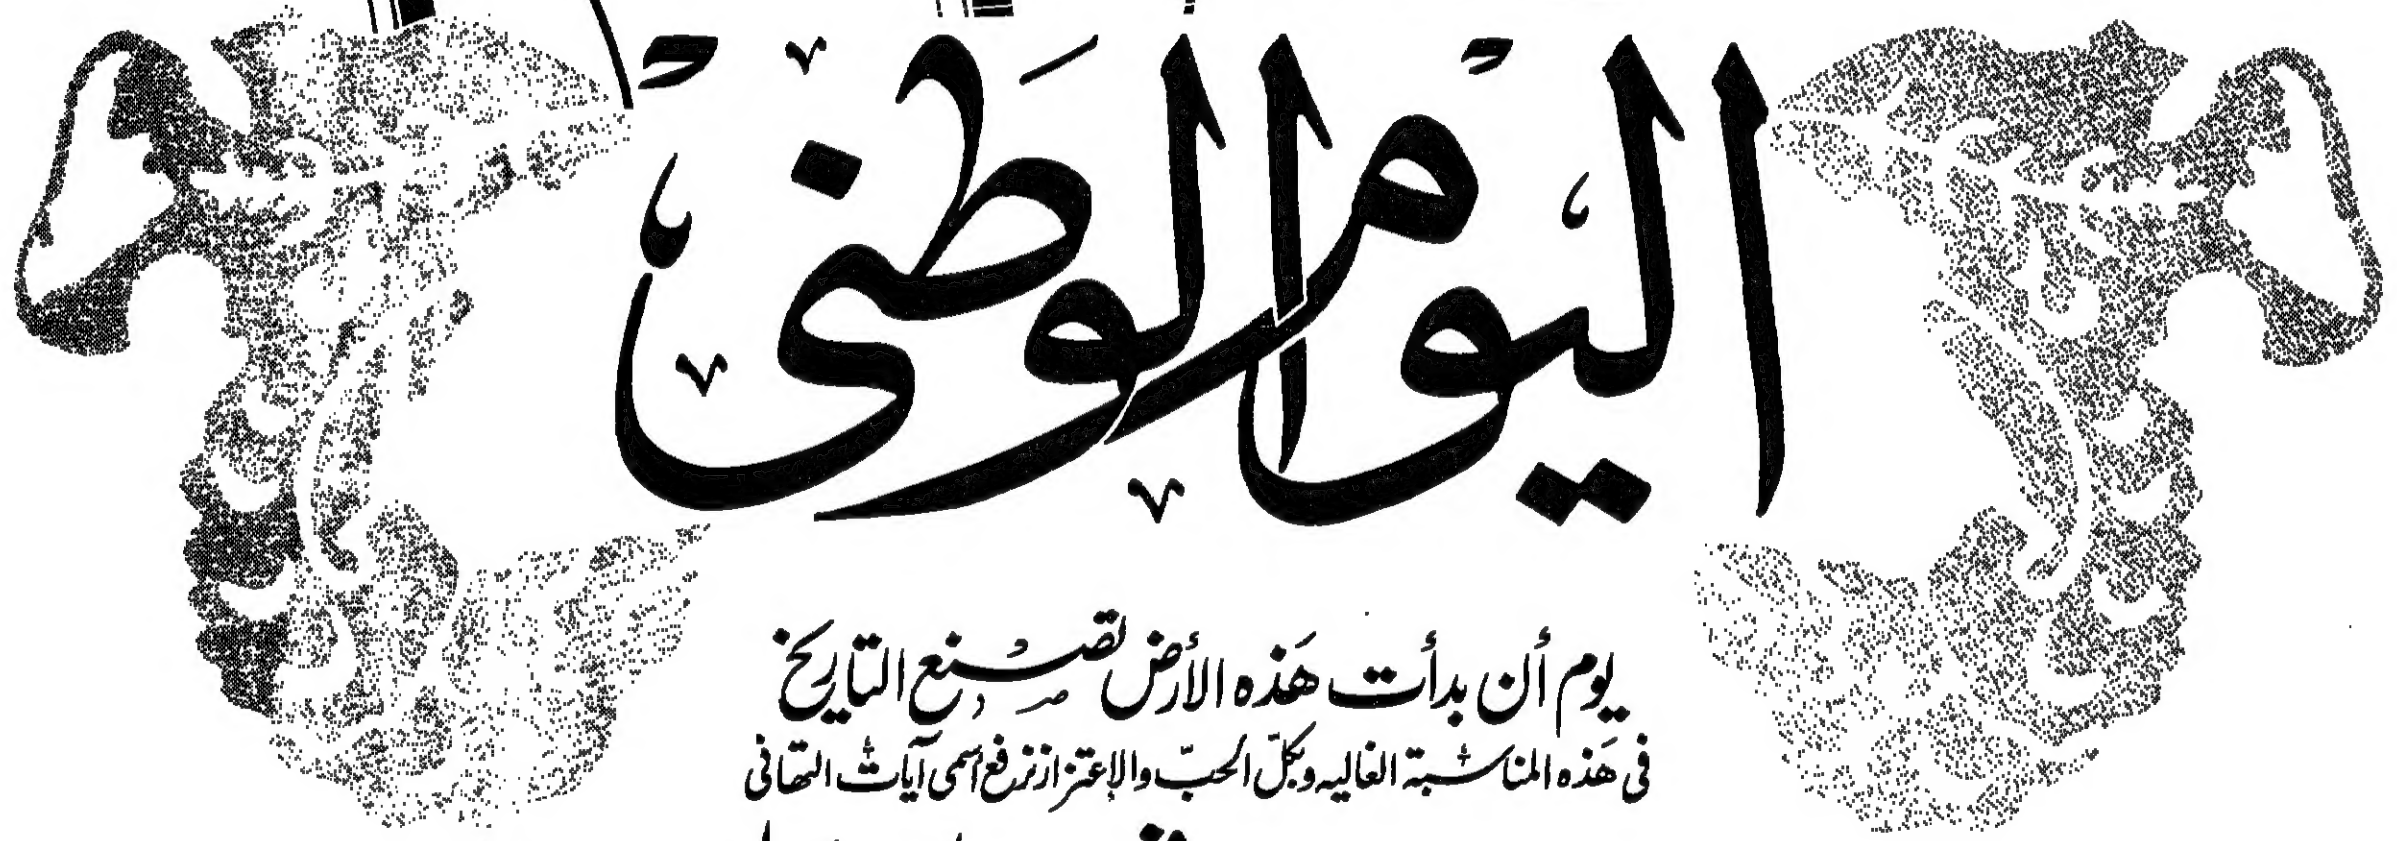 اليوم الوطني
يوم أن بدأت هَذه الأرض تصنع التاريخ
في هَذه المناسبة الغاليه وبكلّ الحبّ والإعتزاز نرفع أسمى آيات التهاني